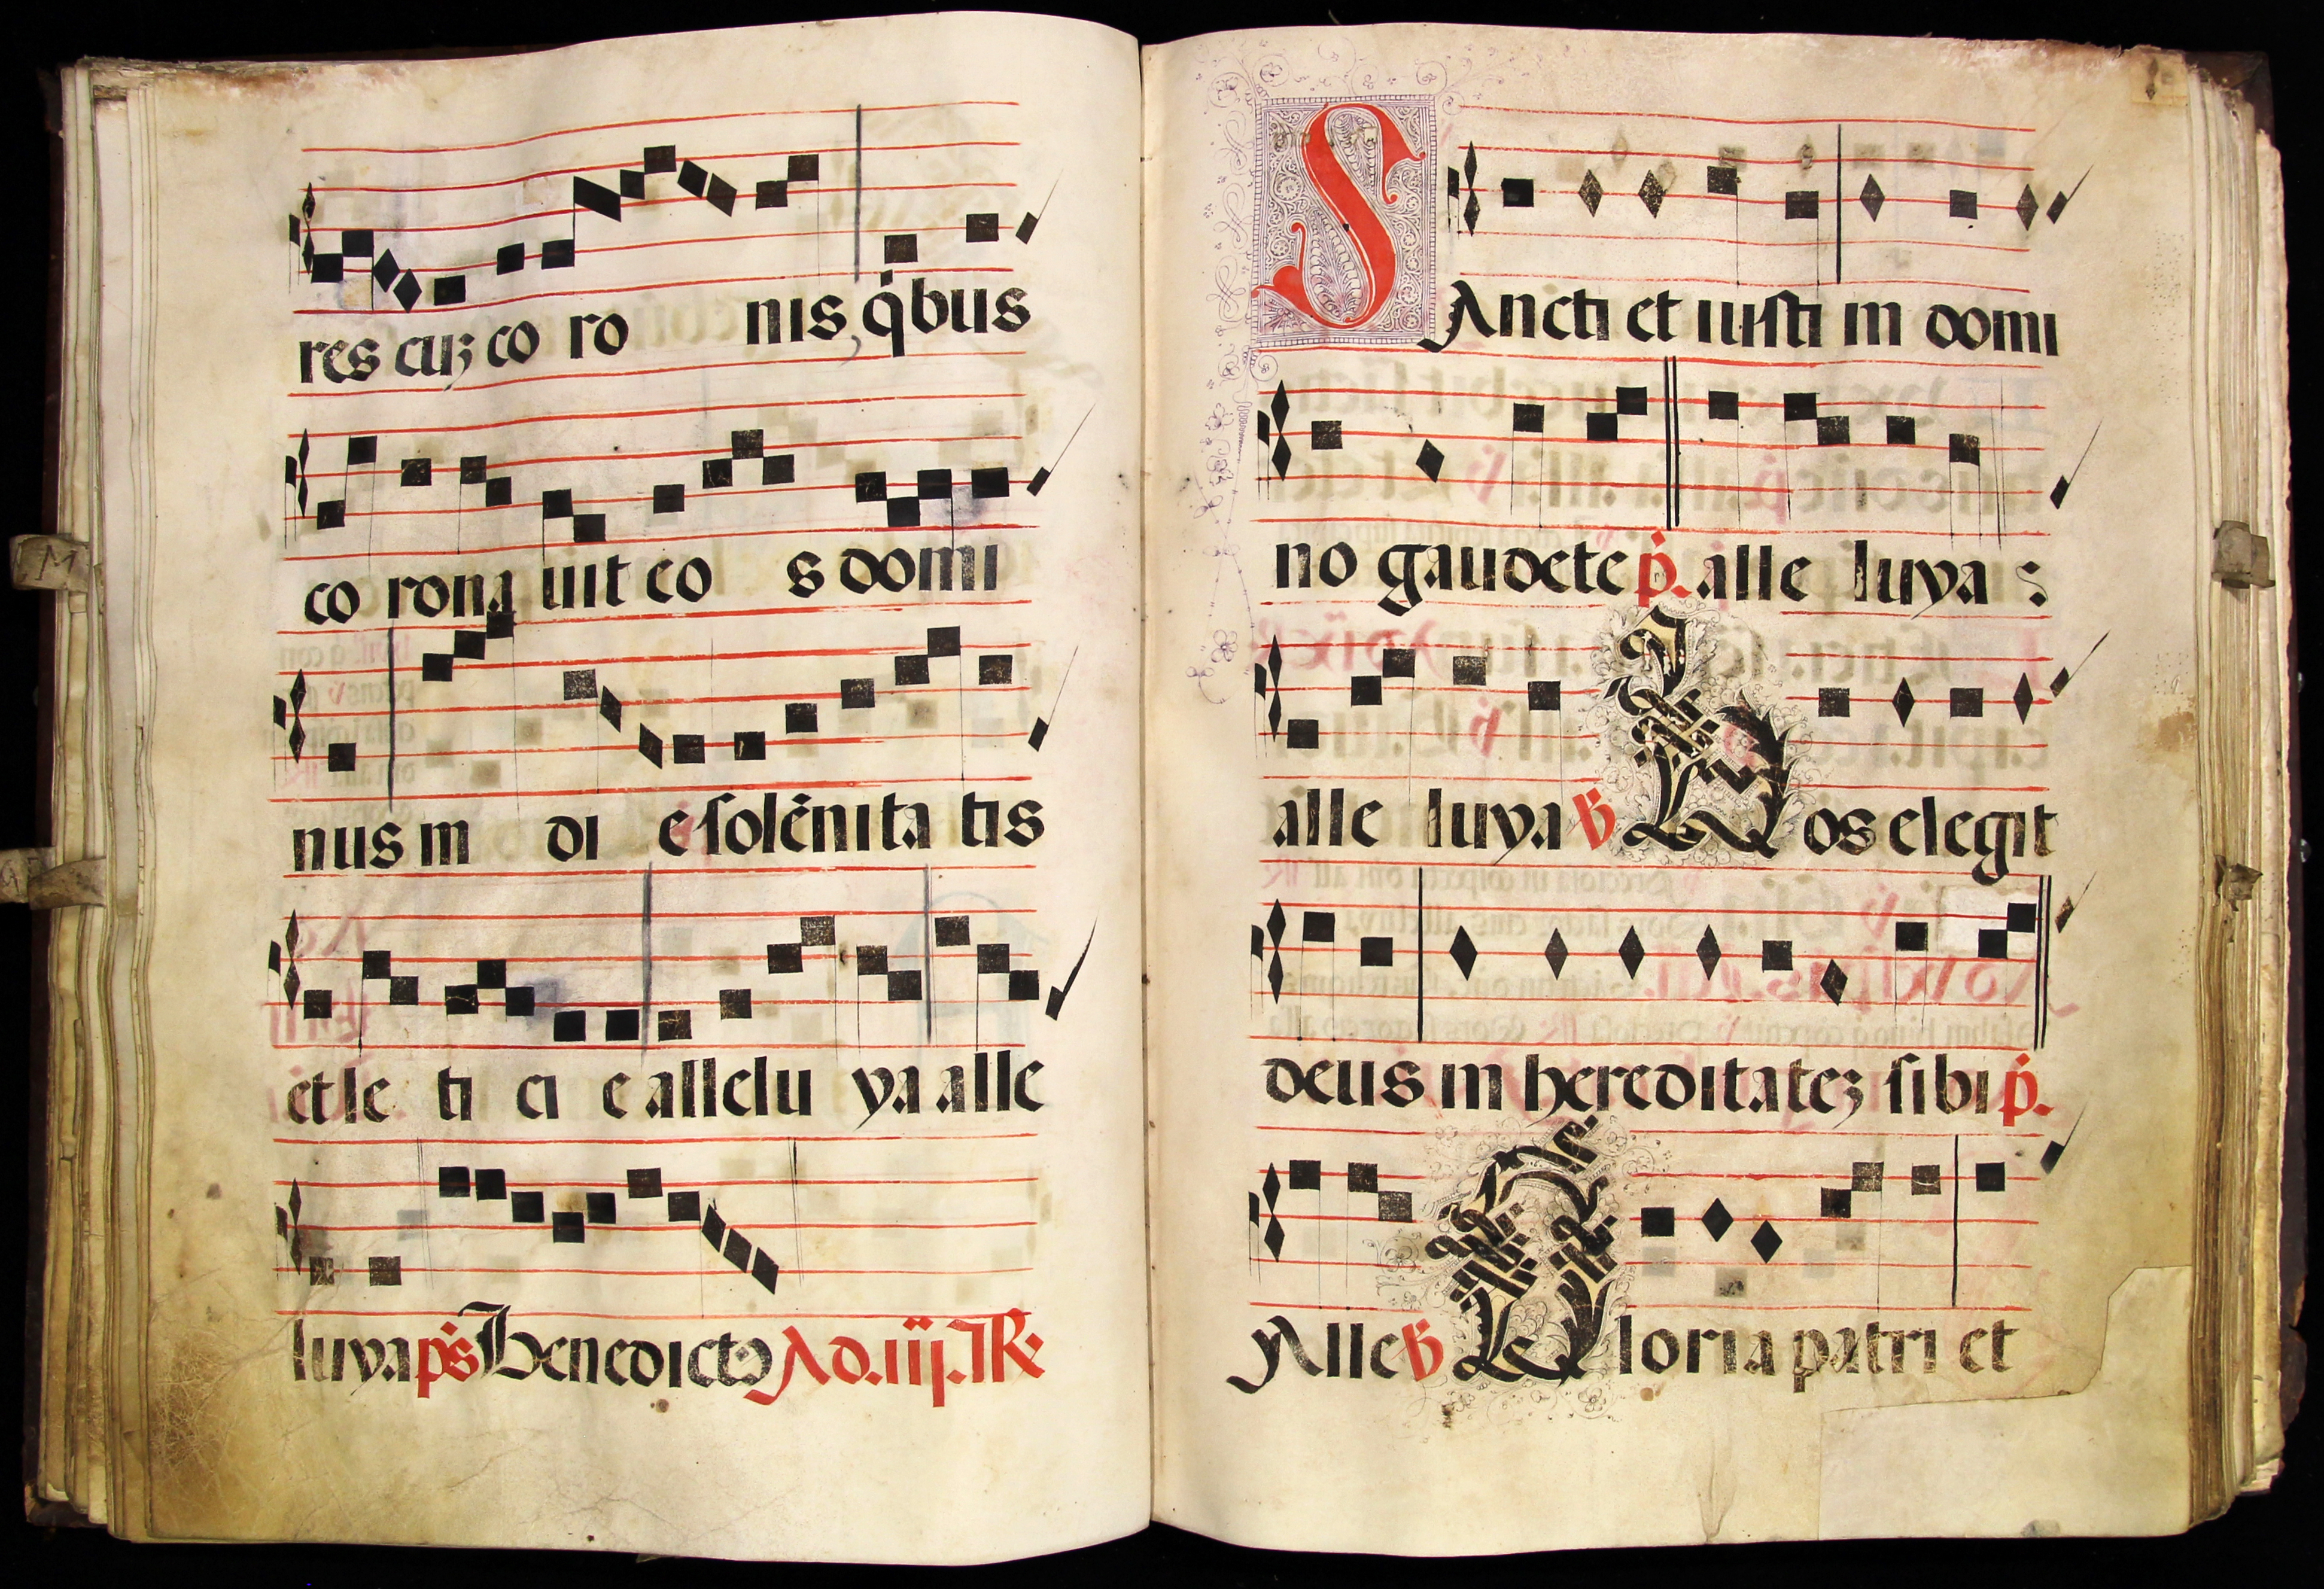 res cuȝ co ro nis q̇bus
co rona uit eo s domi
nus in di e solēnita tis
et le ti ci e allelu ya alle
luya ps Benedictꝯ Ad .iij. R
SAncti et iusti in domi
no gaudete p̄. alle luya :
alle luya ℣ Uos elegit
deus in hereditateȝ sibi p̄.
Alle ℣ Gloria patri et
M